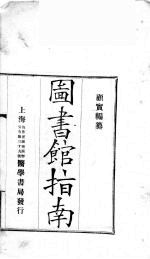 顧實編纂
圖書館指南
上海
醫學書局發行